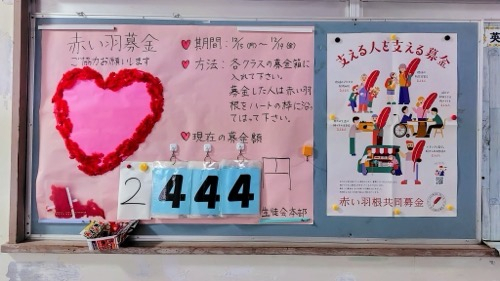 赤い羽募金
ご協力お願いします
期間: 12/5(月)〜12/9(金)
方法: 各クラスの募金箱に
入れて下さい。
募金した人は赤い羽
根をハートの枠に沿っ
てはって下さい。
現在の募金額
2 4 4 4 円
生徒会本部
支える人を支える募金
赤い羽根共同募金